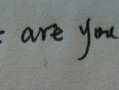 : are you